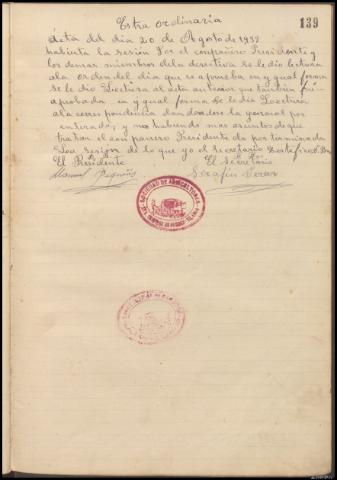 Estra ordinaria
139
Acta del dia 20 de Agosto de 1932
habierta la sesión Por el compañero Presidente y
los demas miembros dela directiva se le dio lectura
ala orden del dia que se aprueba en y gual forma
se le dio Lectura al acta anterior que tambien fue
aprobada en y gual forma se le dia Lectura
ala correspondencia dandose la general por
enterado, y no habiendo mas asuntos de que
tratar el compañero Presidente da por terminada
Laa sesión de lo que yo el Secretario Zertefico
El Presidente El Secretario
Manuel Serafin
SOCIEDAD DE AGRICULTORES